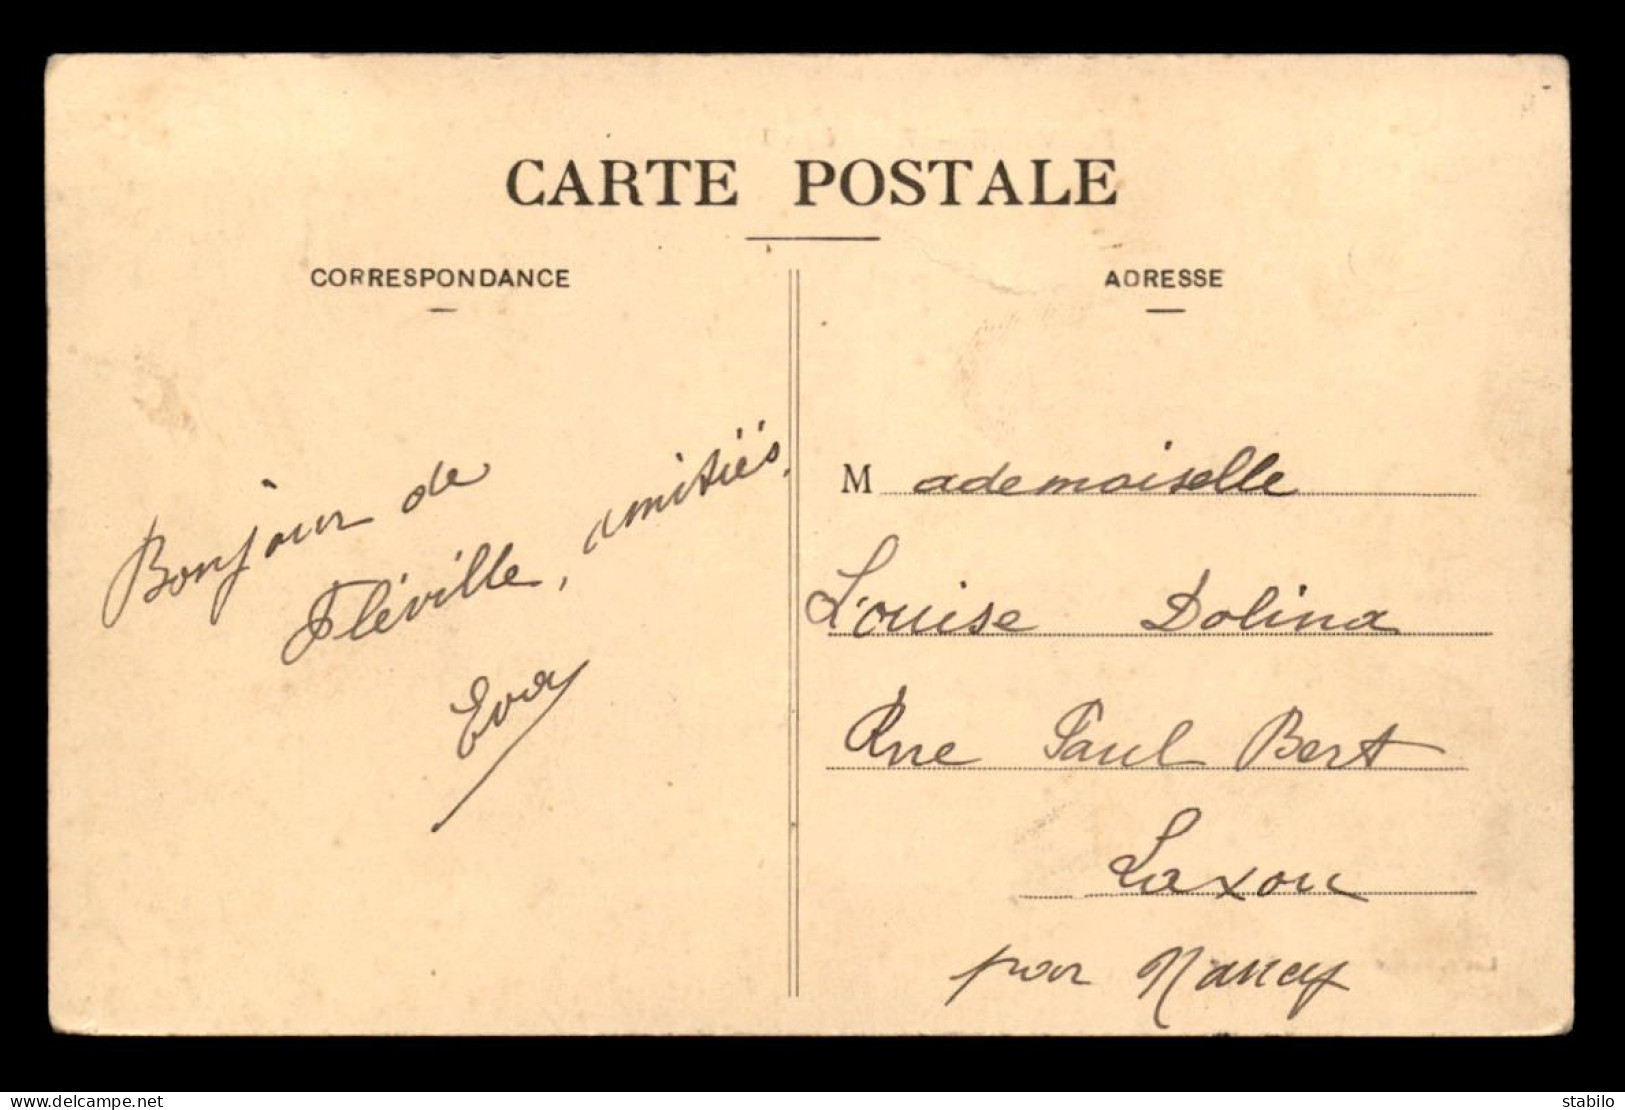 CARTE POSTALE
CORRESPONDANCE
Bonjour de
Fléville, amitiés.
Eva
ADRESSE
Mademoiselle
Louise Dolina
Rue Paul Bert
Laxou
par Nancy
www.delcampe.net
stabilo